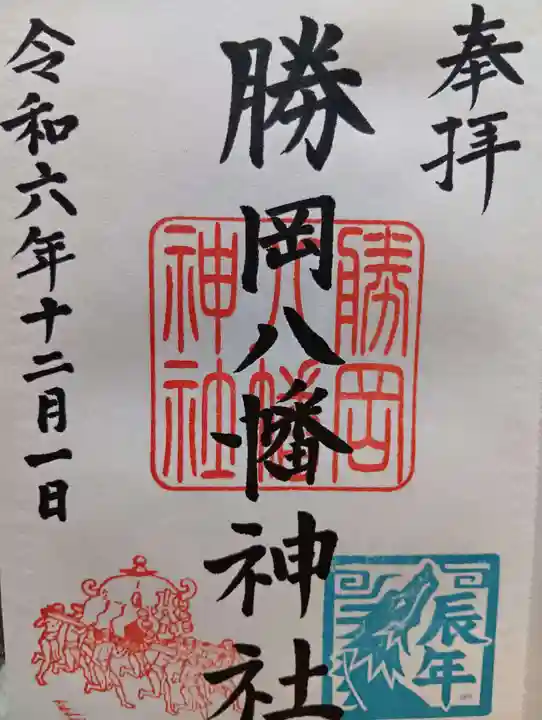 奉拝
勝岡八幡神社
勝岡
八幡
神社
令和六年十二月一日
辰年